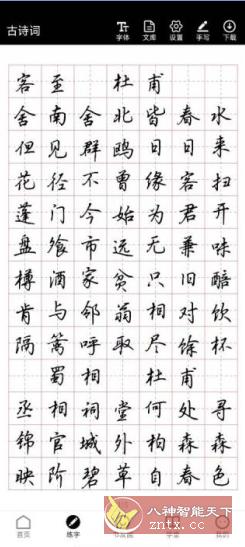 古诗词
字体 文库 设置 手写 下载
客至 杜甫
舍南舍北皆春水
但见群鸥日日来
花径不曾缘客扫
蓬门今始为君开
盘飧市远无兼味
樽酒家贫只旧醅
肯与邻翁相对饮
隔篱呼取尽馀杯
蜀相 杜甫
丞相祠堂何处寻
锦官城外柏森森
映阶碧草自春色
首页 练字
八神智能天下
zntx.cc